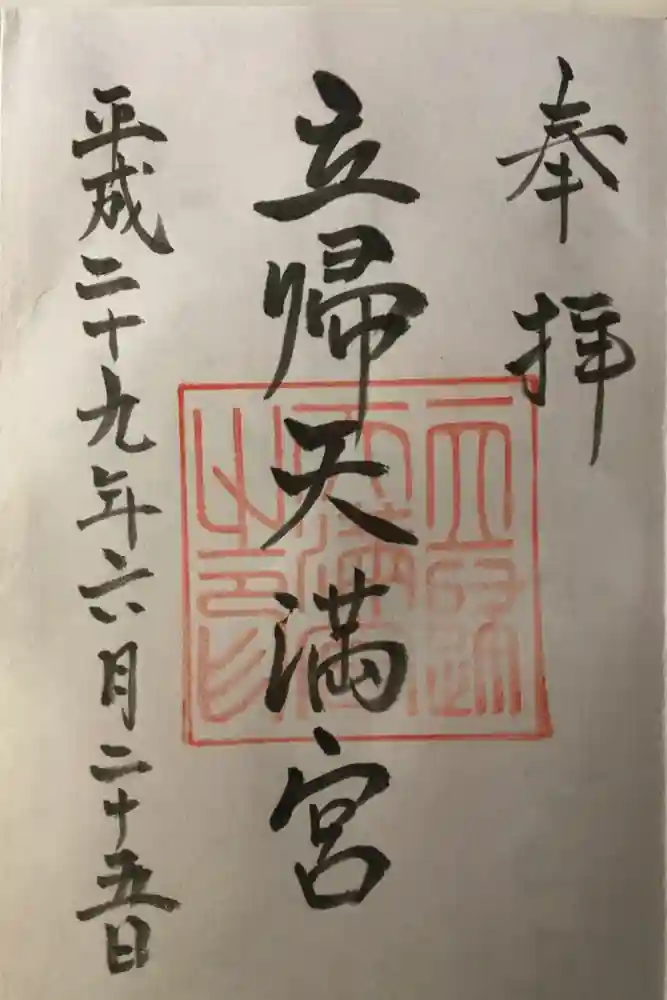 奉拝
立帰天満宮
平成二十九年六月二十五日